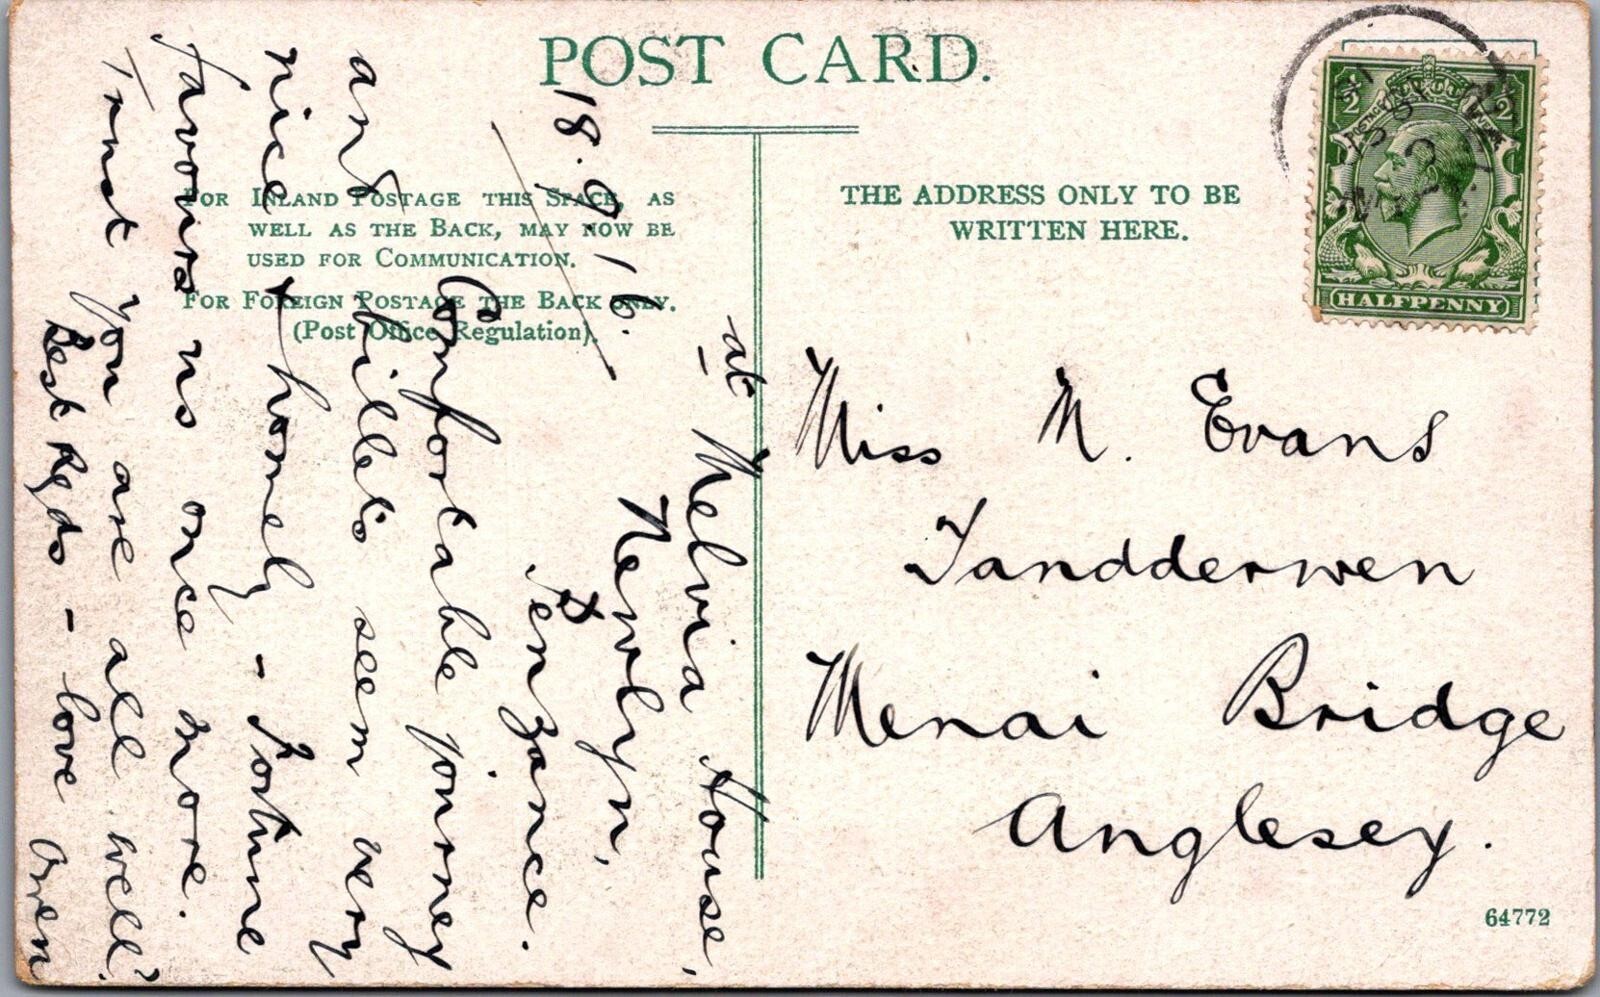 POST CARD.
FOR INLAND POSTAGE THIS SPACE, AS
WELL AS THE BACK, MAY NOW BE
USED FOR COMMUNICATION.
FOR FOREIGN POSTAGE THE BACK ONLY.
(Post Office Regulation).
THE ADDRESS ONLY TO BE
WRITTEN HERE.
½ ½
POSTAGE
HALFPENNY
Miss N. Evans
Tandderwen
Menai Bridge
Anglesey.
64772
at Melvia House,
Newlyn,
Penzance.
18.9.16.
Comfortable journey
and billets seem very
nice & homely - Fortune
favours us once more.
Trust you are all well?
Best Rgds - love Owen